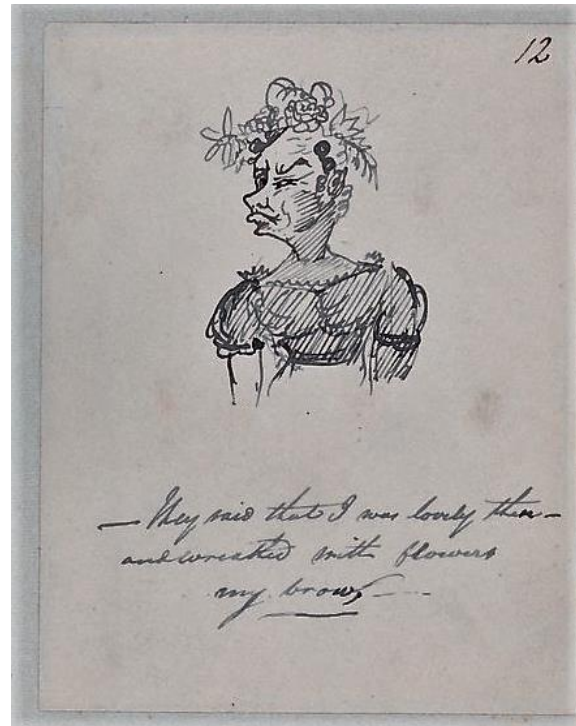 12
— They said that I was lovely then —
and wreathed with flowers
my brow, —